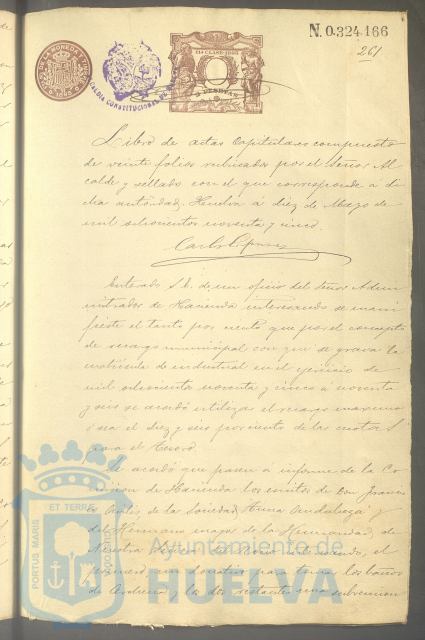 N. 0.324,166
261
11ª CLASE 1895
2 PESETAS
ALCALDIA CONSTITUCIONAL
Libro de actas Capitulares compuesto
de veinte folios rubricados por el Señor Al
calde y sellado con el que corresponde a di
cha autoridad, Huelva á diez de Marzo de
mil ochocientos noventa y cinco.
Enterado S. E. de un oficio del Señor Admi
nistrador de Hacienda interesando se mani
fieste el tanto por ciento que por el concepto
de recargo municipal con que se grava la
matrícula de industrial en el ejercicio de
mil ochocientos noventa y cinco á noventa
y seis se acordó utilizar el recargo maximo
ó sea el diez y seis por ciento de las cuotas
para el Tesoro.
Se acordó que pasen a informe de la Co
misión de Hacienda los escritos de Don Francis
co de la Sociedad Tuna Andaluza y
del Hermano mayor de la Hermandad de
Nuestra Virgen el
para tomar los baños
de y los dos restantes una subvencion
PORTUS MARIS
ET TERRE
CUSTODIA
Ayuntamiento de
HUELVA